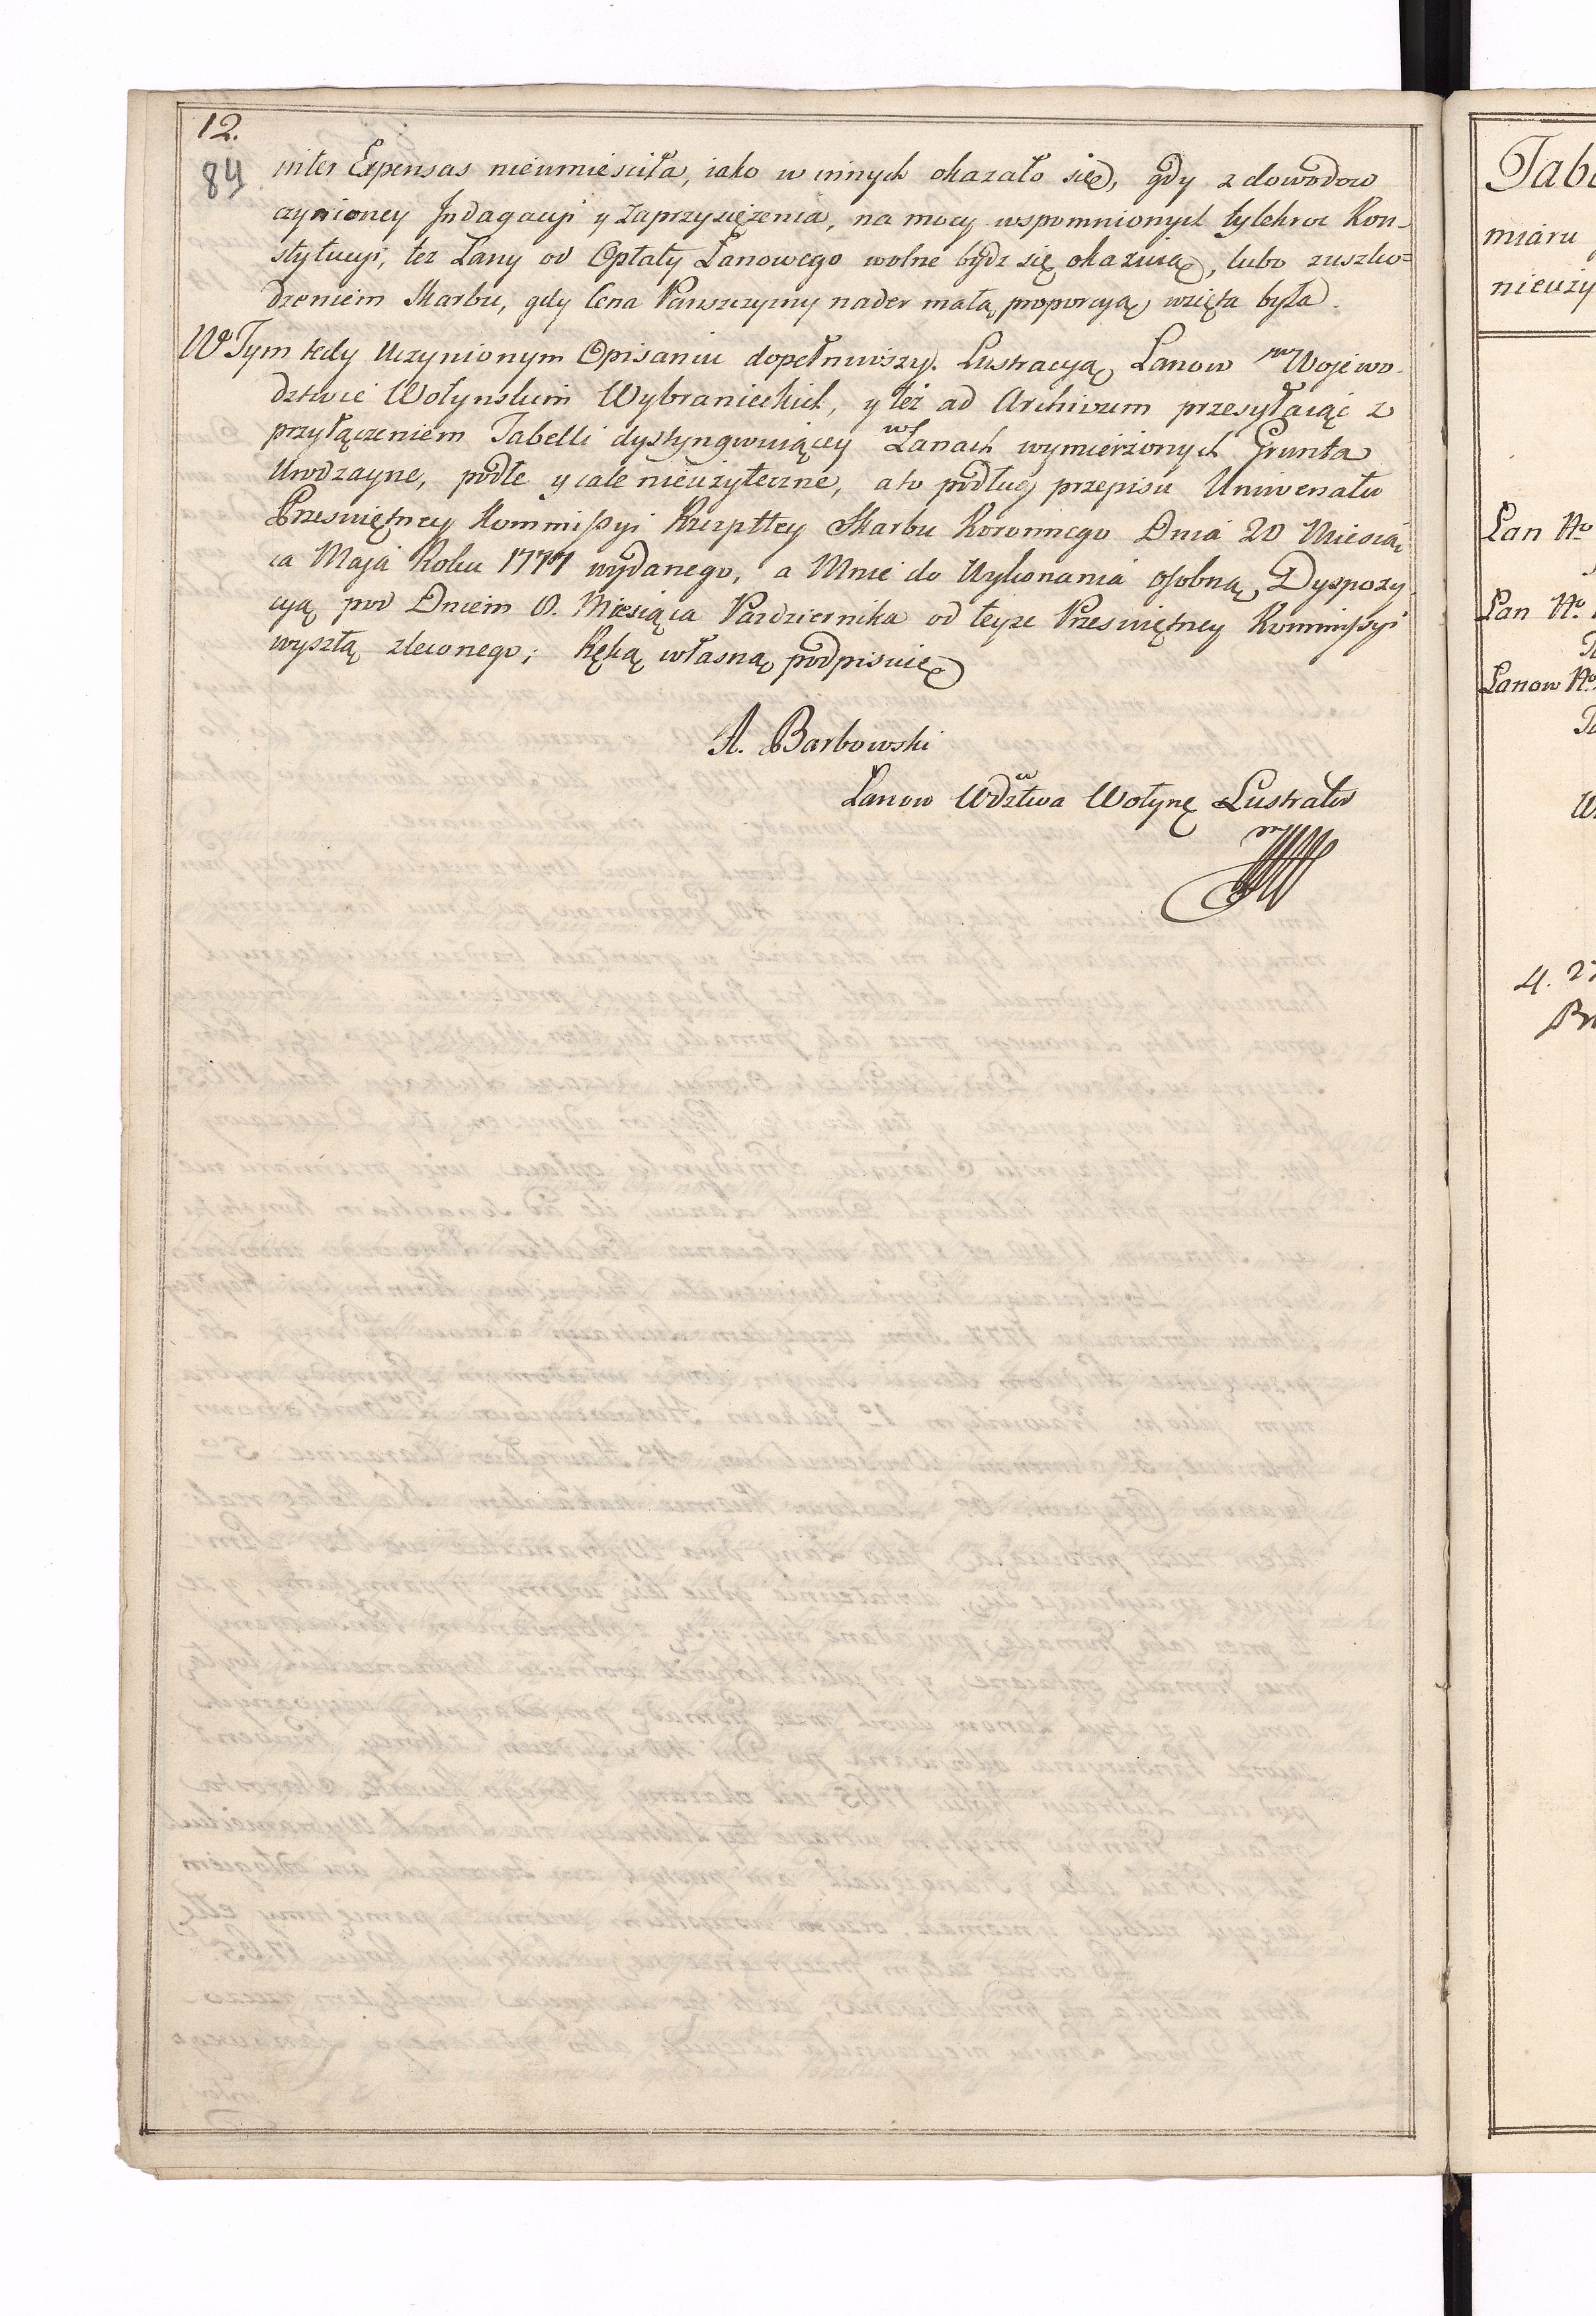 12.
84
inter Expensas nieumieściła, iako w innych okazało się, gdy z dowodow
czynioney Jndagacyi y Zaprzysiężenia, na mocy wspomnionych tylekroc Kon-
stytucyi, tez Łany od Opłaty Łanowego wolne bydz się okazuią, lubo z uszko=
dzeniem Skarbu, gdy Cena Panszczyzny nader małą proporcyą wzięta była.
W Tym tedy Uczynionym Opisaniu dopełniwszy Lustracyą Łanow w Wojewo-
dztwie Wołynskim Wybranieckich, y też ad Archivum przesyłaiąc z
przyłączeniem Tabelli dystyngwuiącey w Łanach wymierzonych Grunta
Urodzayne, podłe y cale nieużyteczne, a to podług przepisu Uniwersału
Przeświętney Kommissyi Rzepltey Skarbu Koronnego Dnia 20 Miesią-
ca Maja Roku 1777 wydanego, a Mnie do Wykonania osobną Dyspozy-
cyą pod Dniem 6. Miesiąca Pazdziernika od teyze Przeświętney Kommissyi
wyszłą zleconego; Ręką własną podpisuię
A. Barbowski
Łanow Wdztwa Wołyng Lustrator
Tab
miaru
nieuży
Łan No
Łan No.
Łanow No.
4. 27